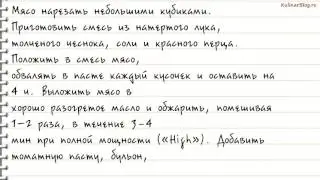 KulinarBlog.ru
Мясо нарезать небольшими кубиками.
Приготовить смесь из натертого лука,
толченого чеснока, соли и красного перца.
Положить в смесь мясо,
обвалять в пасте каждый кусочек и оставить на
4 ч. Выложить мясо в
хорошо разогретое масло и обжарить, помешивая
1-2 раза, в течение 3-4
мин при полной мощности («High»). Добавить
томатную пасту, бульон,